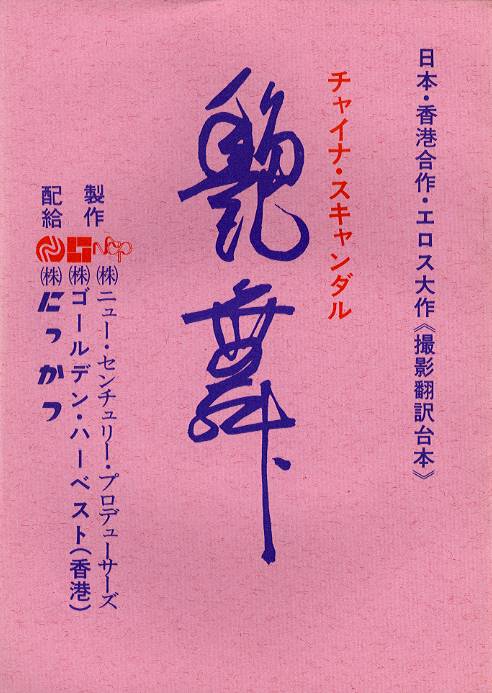 日本・香港合作・エロス大作《撮影翻訳台本》
チャイナ・スキャンダル
艶舞
製作
(株)ニュー・センチュリー・プロデューサーズ
(株)ゴールデン・ハーベスト(香港)
配給
(株)にっかつ